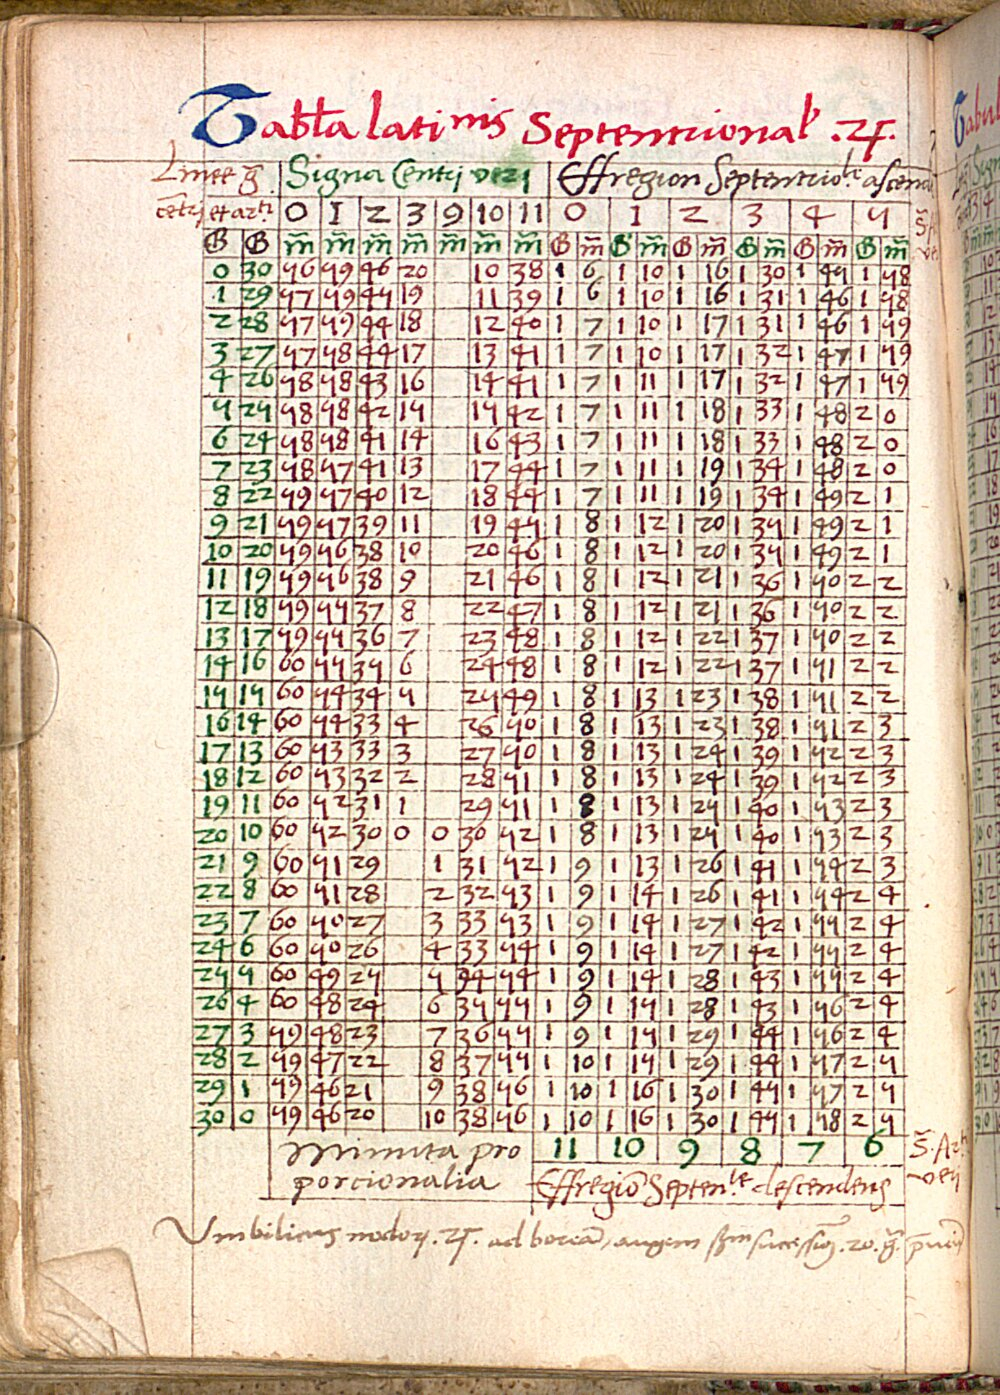 Tabła latinis Septentrional .♃.
Linee g̃ Signa Centri veri Effregion Septentrio.le ascend
cẽtri et arti 0 1 2 3 9 10 11 0 1 2 3 4 5
G G m̃ m̃ m̃ m̃ m̃ m̃ m̃ G m̃ G m̃ G m̃ G m̃ G m̃ G m̃
0 30 56 59 46 20 10 38 1 6 1 10 1 16 1 30 1 45 1 58
1 29 57 59 45 19 11 39 1 6 1 10 1 16 1 31 1 46 1 58
2 28 57 59 44 18 12 40 1 7 1 10 1 17 1 31 1 46 1 59
3 27 57 58 44 17 13 41 1 7 1 10 1 17 1 32 1 47 1 59
4 26 58 58 43 16 14 41 1 7 1 11 1 17 1 32 1 47 1 59
5 25 58 58 42 15 15 42 1 7 1 11 1 18 1 33 1 48 2 0
6 24 58 58 41 14 16 43 1 7 1 11 1 18 1 33 1 48 2 0
7 23 58 57 41 13 17 44 1 7 1 11 1 19 1 34 1 48 2 0
8 22 59 57 40 12 18 44 1 7 1 11 1 19 1 34 1 49 2 1
9 21 59 57 39 11 19 45 1 8 1 12 1 20 1 35 1 49 2 1
10 20 59 56 38 10 20 46 1 8 1 12 1 20 1 35 1 49 2 1
11 19 59 56 38 9 21 46 1 8 1 12 1 21 1 36 1 50 2 2
12 18 59 55 37 8 22 47 1 8 1 12 1 21 1 36 1 50 2 2
13 17 59 55 36 7 23 48 1 8 1 12 1 22 1 37 1 50 2 2
14 16 60 55 35 6 24 48 1 8 1 12 1 22 1 37 1 51 2 2
15 15 60 54 34 5 25 49 1 8 1 13 1 23 1 38 1 51 2 2
16 14 60 54 33 4 26 50 1 8 1 13 1 23 1 38 1 51 2 3
17 13 60 53 33 3 27 50 1 8 1 13 1 24 1 39 1 52 2 3
18 12 60 53 32 2 28 51 1 8 1 13 1 24 1 39 1 52 2 3
19 11 60 52 31 1 29 51 1 8 1 13 1 25 1 40 1 53 2 3
20 10 60 52 30 0 0 30 52 1 8 1 13 1 25 1 40 1 53 2 3
21 9 60 51 29 1 31 52 1 9 1 13 1 26 1 41 1 54 2 3
22 8 60 51 28 2 32 53 1 9 1 14 1 26 1 41 1 54 2 4
23 7 60 50 27 3 33 53 1 9 1 14 1 27 1 42 1 55 2 4
24 6 60 50 26 4 33 54 1 9 1 14 1 27 1 42 1 55 2 4
25 5 60 49 25 5 34 54 1 9 1 14 1 28 1 43 1 55 2 4
26 4 60 48 24 6 35 55 1 9 1 15 1 28 1 43 1 56 2 4
27 3 59 48 23 7 36 55 1 9 1 15 1 29 1 44 1 56 2 4
28 2 59 47 22 8 37 55 1 10 1 15 1 29 1 44 1 57 2 5
29 1 59 46 21 9 38 56 1 10 1 16 1 30 1 45 1 57 2 5
30 0 59 46 20 10 38 56 1 10 1 16 1 30 1 45 1 58 2 5
Minuta pro 11 10 9 8 7 6
porcionalia Effregiõ Septen.le descendens
Vmbilicus nodorum .♃. ad boreã augem sm successionẽ .20. g̃.